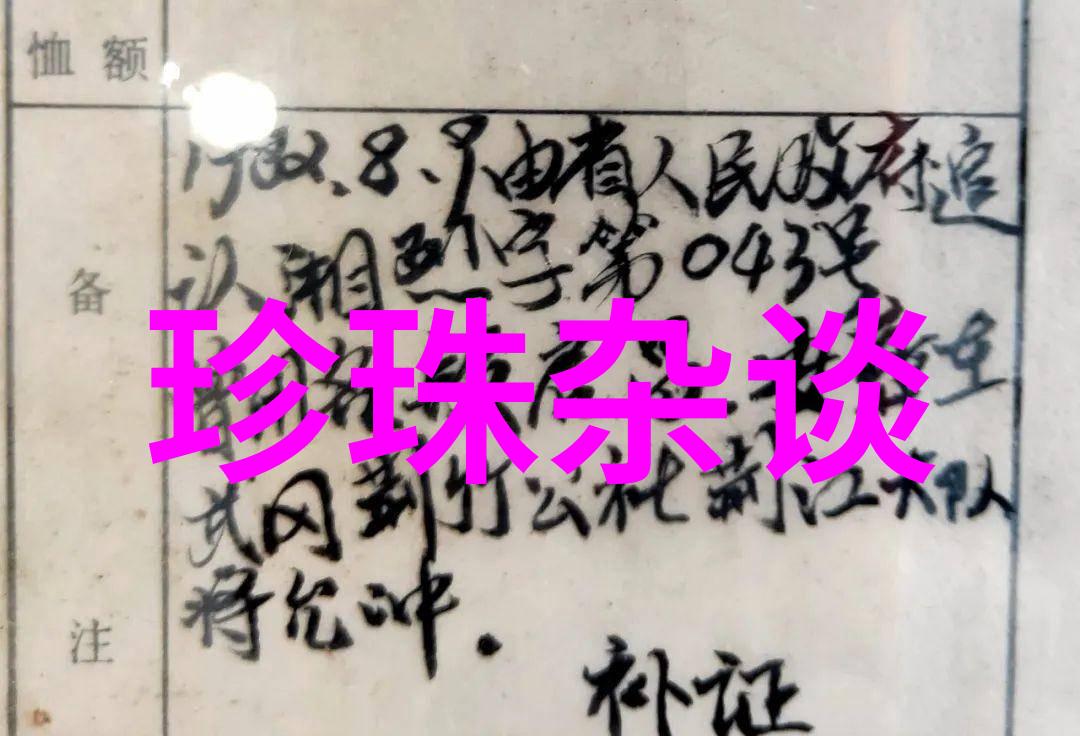 恤额
备
注
1982.8.9由省人民政府追
认湘烈字第043号
珍珠杂谈
武冈荆竹公社荆江大队
蒋允冲.
补证